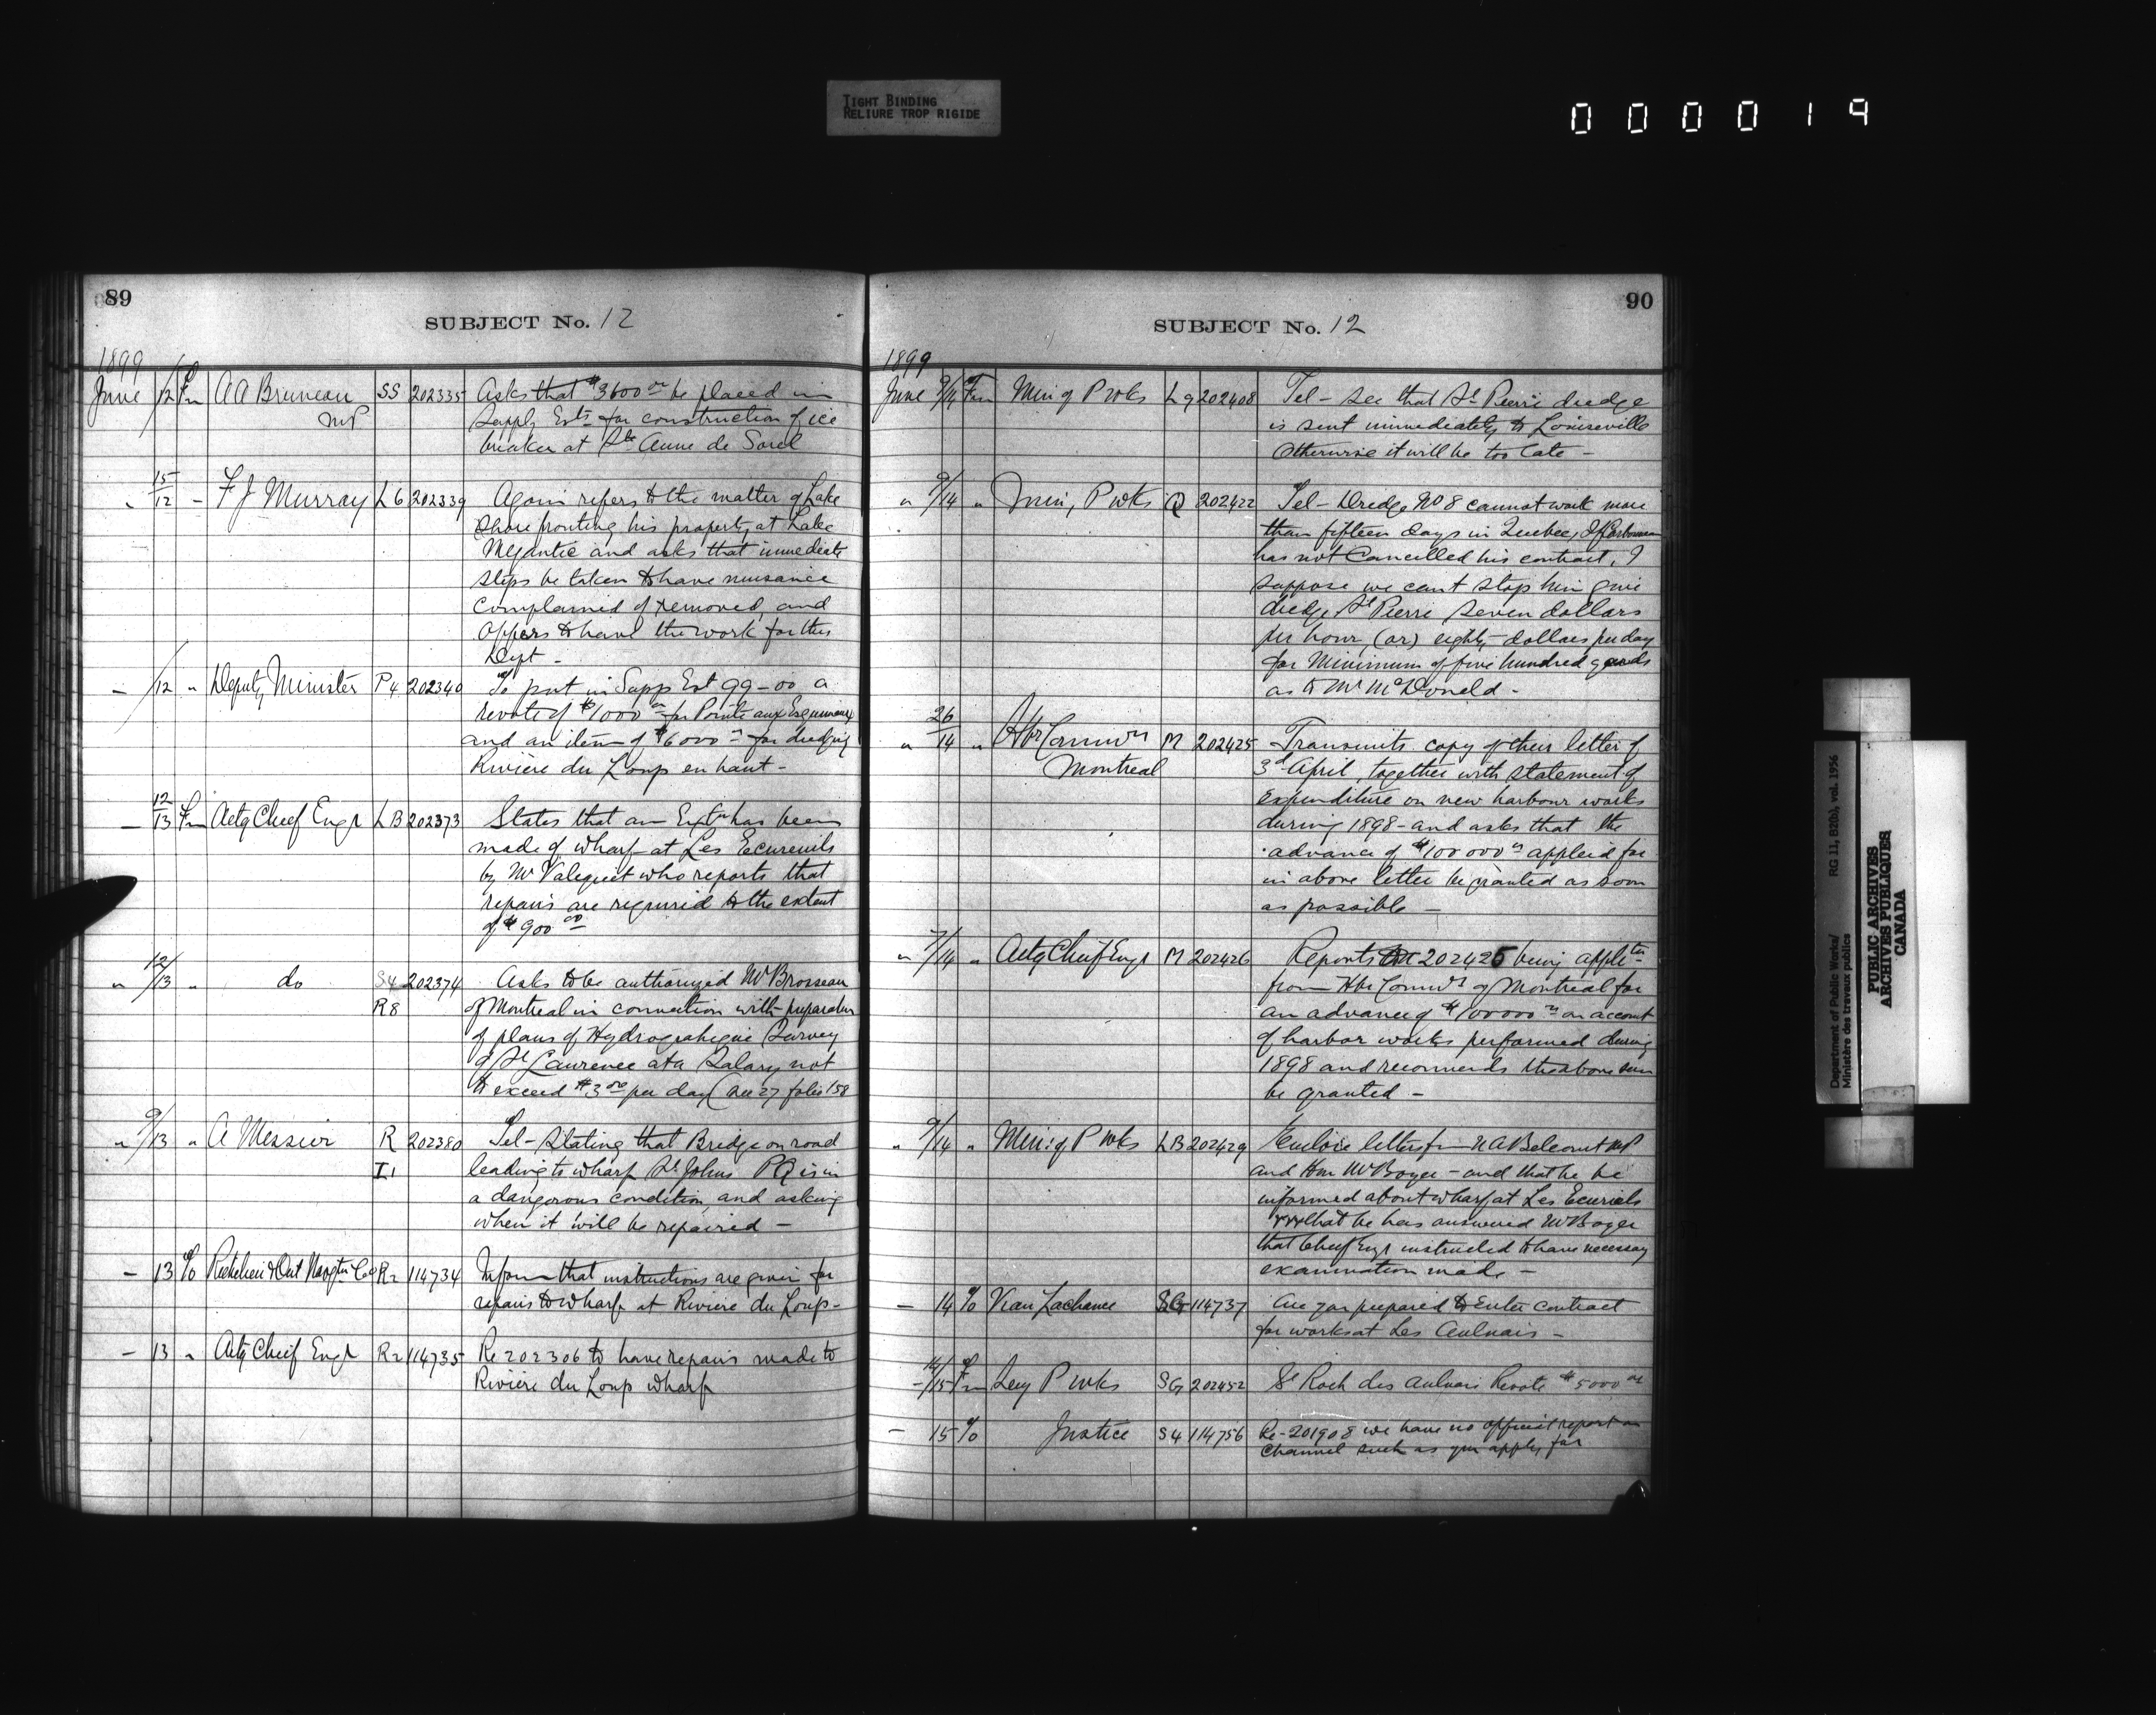 TIGHT BINDING
RELIURE TROP RIGIDE
000019
89
SUBJECT No. 12
1899
June /12 Fm A A Bruneau SS 202335 Asks that $3600 00 be placed in
MP Supply Ests for construction of ice
breaker at Ste Anne de Sorel
" 15/12 - F J Murray L6 202339 Again refers to the matter of Lake
Shore fronting his property at Lake
Megantic and asks that immediate
steps be taken to have nuisance
complained of removed, and
offers to have the work for this
Dept -
- /12 " Deputy Minister P4 202340 To put in Supp Est 99-00 a
revote of $1000 00 for Pointe aux Esquimaux
and an item of $6000 00 for dredging
Rivière du Loup en haut -
- 12/13 Fm Actg Chief Engr LB 202373 States that an Extn has been
made of wharf at Les Ecureuils
by Mr Valequet who reports that
repairs are required to the extent
of $900 00
" 12/13 " do S4 202374 Asks to be authorized Mr Brosseau
R8 of Montreal in connection with preparation
of plans of Hydrographic Survey
of St Lawrence at a Salary not
to exceed $3 00 per day (See 27 folio 158
" 9/13 " A Messier R 202380 Tel - Stating that Bridge on road
I1 leading to wharf St Johns PQ is in
a dangerous condition, and asking
when it will be repaired -
- 13 % Richelieu & Ont Navgtn Co R2 114734 Inform that instructions are given for
repairs to wharf at Riviere du Loup -
- 13 " Actg Chief Engr R2 114735 Re 202306 to have repairs made to
Riviere du Loup wharf
90
SUBJECT No. 12
1899
June 9/14 Fm Min of P wks L9 202408 Tel - See that St Pierre dredge
is sent immediately to Louiseville
Otherwise it will be too late -
" 9/14 " Min, P wks Q 202422 Tel - Dredge No 8 cannot work more
than fifteen days in Quebec, If
has not Cancelled his contract, I
suppose we cant stop him give
dredge St Pierre seven dollars
per hour, (or) eighty dollars per day
for Minimum of five hundred yards
as to Mr McDonald -
" 26/14 " Hbr Commrs M 202425 Transmits copy of their letter of
Montreal 3d April, together with statement of
Expenditure on new harbour works
during 1898 - and asks that the
advance of $100 000 00 applied for
in above letter be granted as soon
as possible -
" 7/14 " Actg Chief Engr M 202426 Reports on 202425 being appltn
from Hbr Commrs of Montreal for
an advance of $100000 00 on account
of harbor works performed during
1898 and recommends the above sum
be granted -
" 9/14 " Min: of P wks LB 202429 Enclose letters fm N A Belcourt MP
and Hon Mr Boyer - and that he be
informed about wharf at Les Ecuriels
that he has answered Mr Boyer
that Chief Engr instructed to have necessary
examination made -
- 14 % Vean Lachance SG 114737 Are you prepared to Enter contract
for works at Les Aulnais -
- 14/15 Fm Secy P wks SG 202452 St Roch des Aulnais Revote $5000 00
- 15 % Justice S4 114756 Re - 201908 we have no official report on
Channel such as you apply for
Department of Public Works/
Ministère des travaux publics
RG 11, B2(b), vol. 1956
PUBLIC ARCHIVES
ARCHIVES PUBLIQUES
CANADA